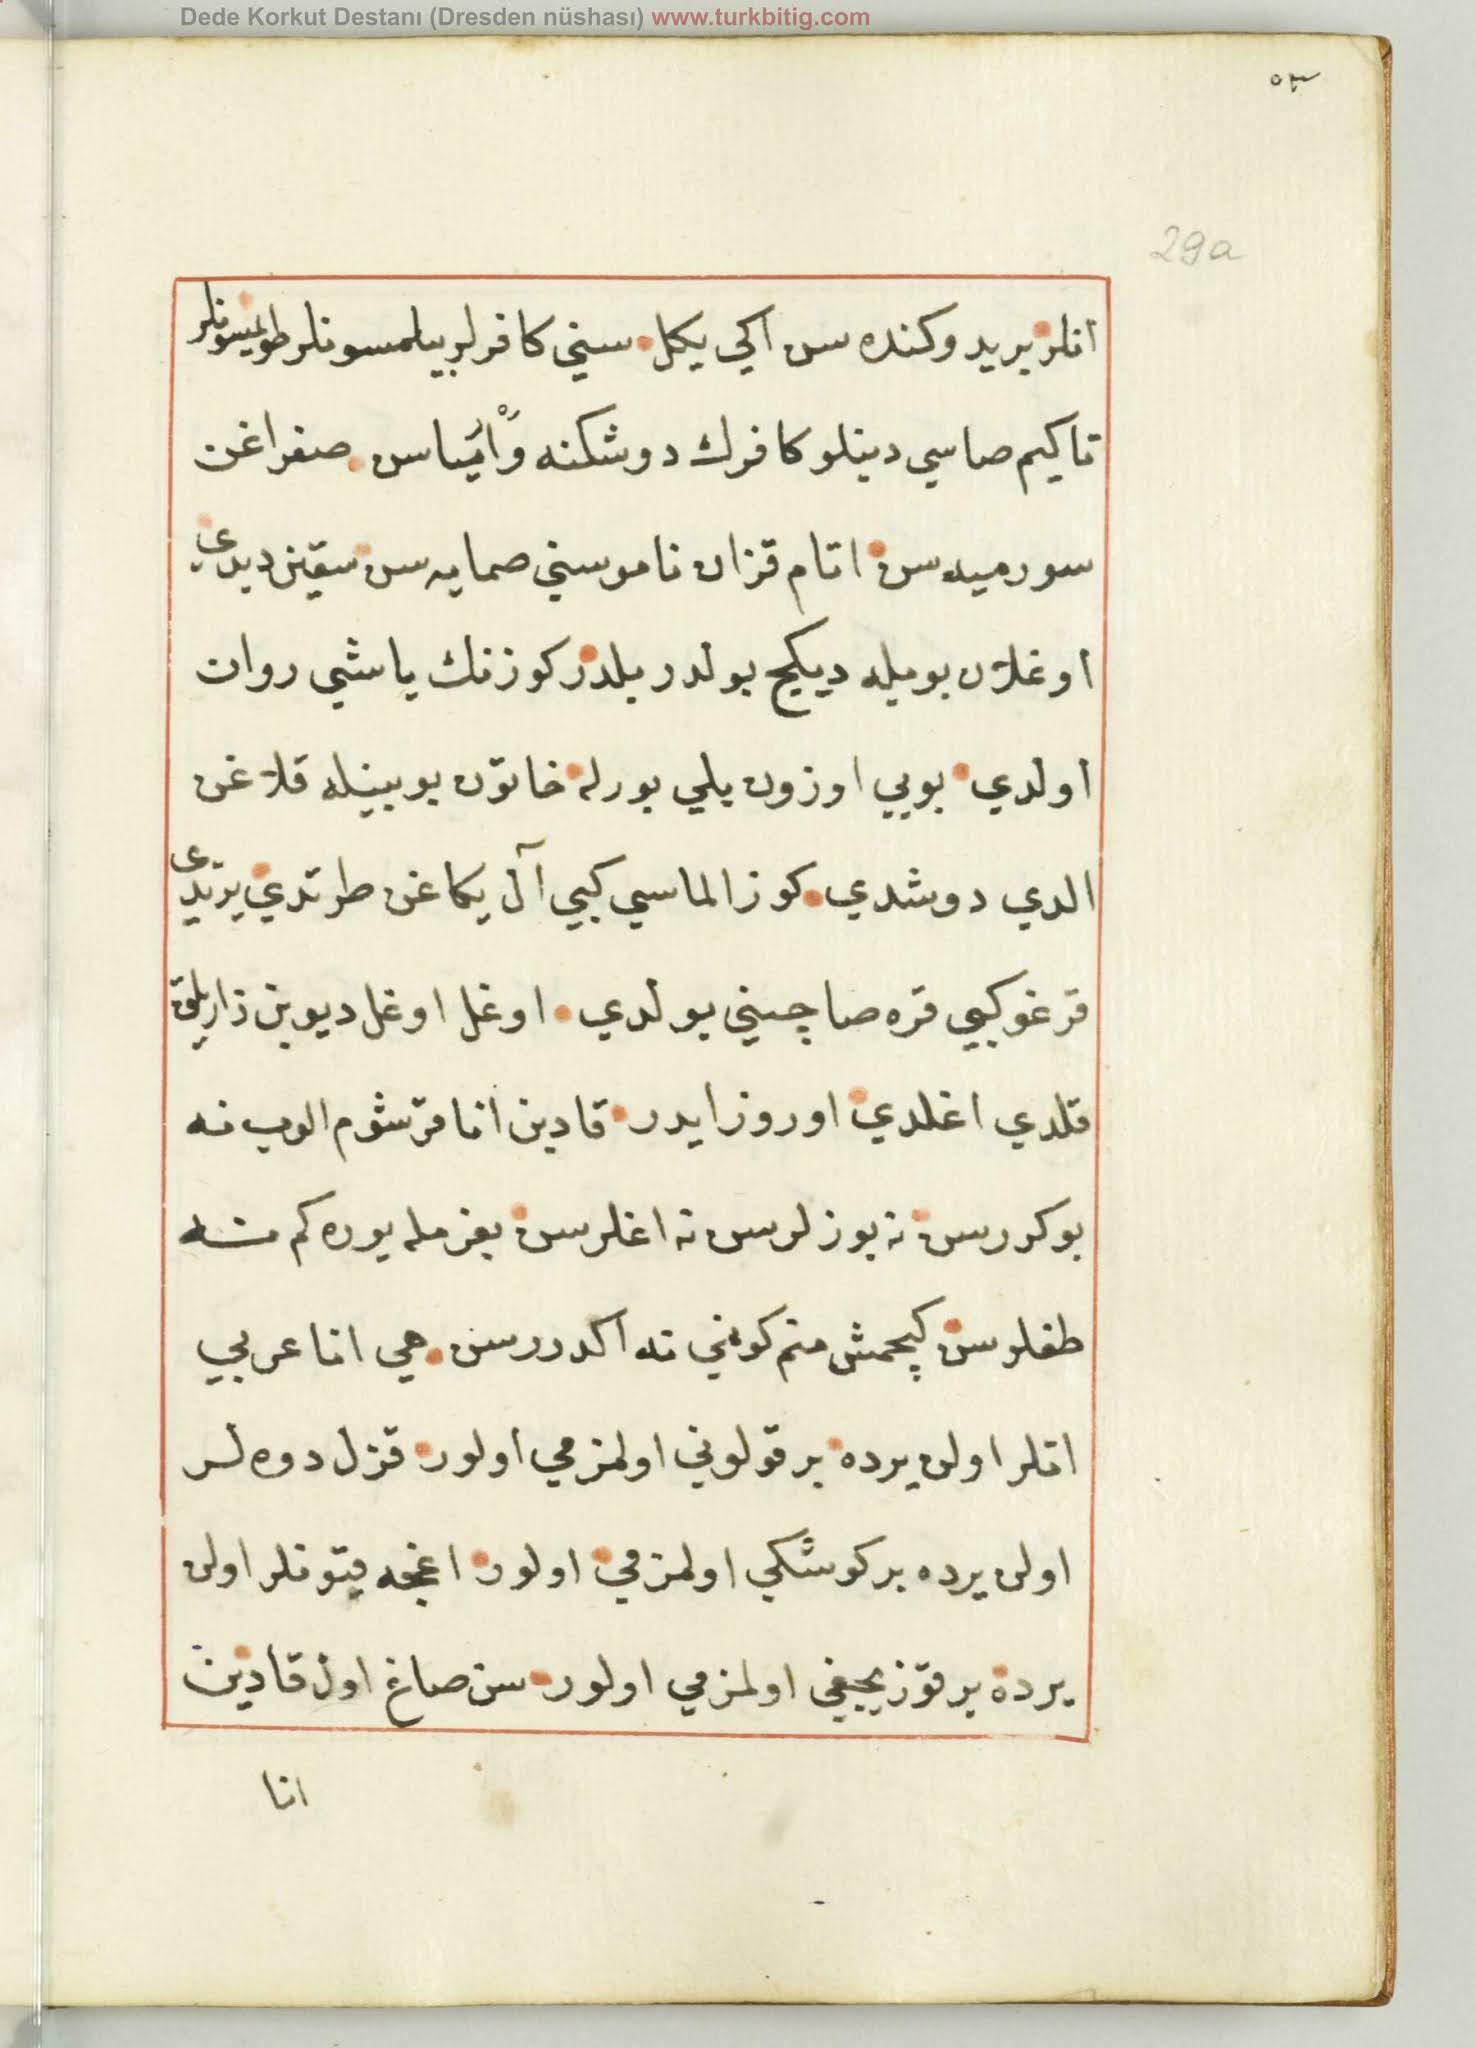 Dede Korkut Destanı (Dresden nüshası) www.turkbitig.com
٥٣
29a
انلر بريد وكنده سن اكي يكل سني كافرلر بيلمسونلر طويمسونلر
تاكيم صاسي دينلو كافرك دوشكنه وارمياسن صغراغن
سورميه سن اتام قزان ناموسني صمايه سن سقين ديدي
اوغلان بويله ديكج بولدر بلدر كوزنك ياشي روان
اولدي بويي اوزون بلي بورله خاتون بوينيله قلاغن
الدي دوشدي كوز الماسي كبي آل يكاغن طرتدي يرتدي
قرغو كبي قره صاچيني يولدي اوغل اوغل ديوبن زاريلق
قلدي اغلدي اوروز ايدر قادين انا قرشوم الوب نه
بوكررسن نه بوزلرسن نه اغلرسن بغرمله يوره كم نه
طغلرسن كچمش منم كونمي نه اكدررسن هي انا عربي
اتلر اولن يرده بر قولوني اولمزمي اولور قزل دوه لر
اولن يرده بر كوشكي اولمزمي اولور اغجه قيونلر اولن
يرده بر قوزيجغي اولمزمي اولور سن صاغ اول قادين
انا